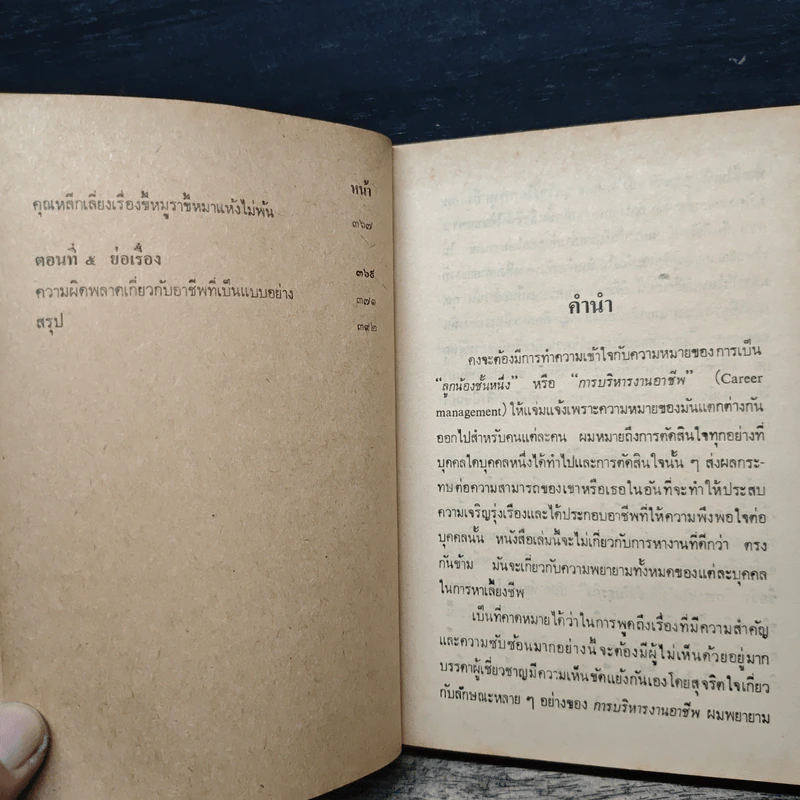 หน้า
คุณหลีกเลี่ยงเรื่องขี้หมูราขี้หมาแห้งไม่พ้น
๓๖๗
ตอนที่ ๕ ย่อเรื่อง
๓๖๙
ความผิดพลาดเกี่ยวกับอาชีพที่เป็นแบบอย่าง
๓๗๑
สรุป
๓๙๒
คำนำ
คงจะต้องมีการทำความเข้าใจกับความหมายของการเป็น
“ลูกน้องชั้นหนึ่ง” หรือ “การบริหารงานอาชีพ” (Career
management) ให้แจ่มแจ้งเพราะความหมายของมันแตกต่างกัน
ออกไปสำหรับคนแต่ละคน ผมหมายถึงการตัดสินใจทุกอย่างที่
บุคคลใดบุคคลหนึ่งได้ทำไปและการตัดสินใจนั้น ๆ ส่งผลกระ-
ทบต่อความสามารถของเขาหรือเธอในอันที่จะทำให้ประสบ
ความเจริญรุ่งเรืองและได้ประกอบอาชีพที่ให้ความพึงพอใจต่อ
บุคคลนั้น หนังสือเล่มนี้จะไม่เกี่ยวกับการหางานที่ดีกว่า ตรง
กันข้าม มันจะเกี่ยวกับความพยายามทั้งหมดของแต่ละบุคคล
ในการหาเลี้ยงชีพ
เป็นที่คาดหมายได้ว่าในการพูดถึงเรื่องที่มีความสำคัญ
และความซับซ้อนมากอย่างนี้จะต้องมีผู้ไม่เห็นด้วยอยู่มาก
บรรดาผู้เชี่ยวชาญมีความเห็นขัดแย้งกันเองโดยสุจริตใจเกี่ยว
กับลักษณะหลาย ๆ อย่างของ การบริหารงานอาชีพ ผมพยายาม